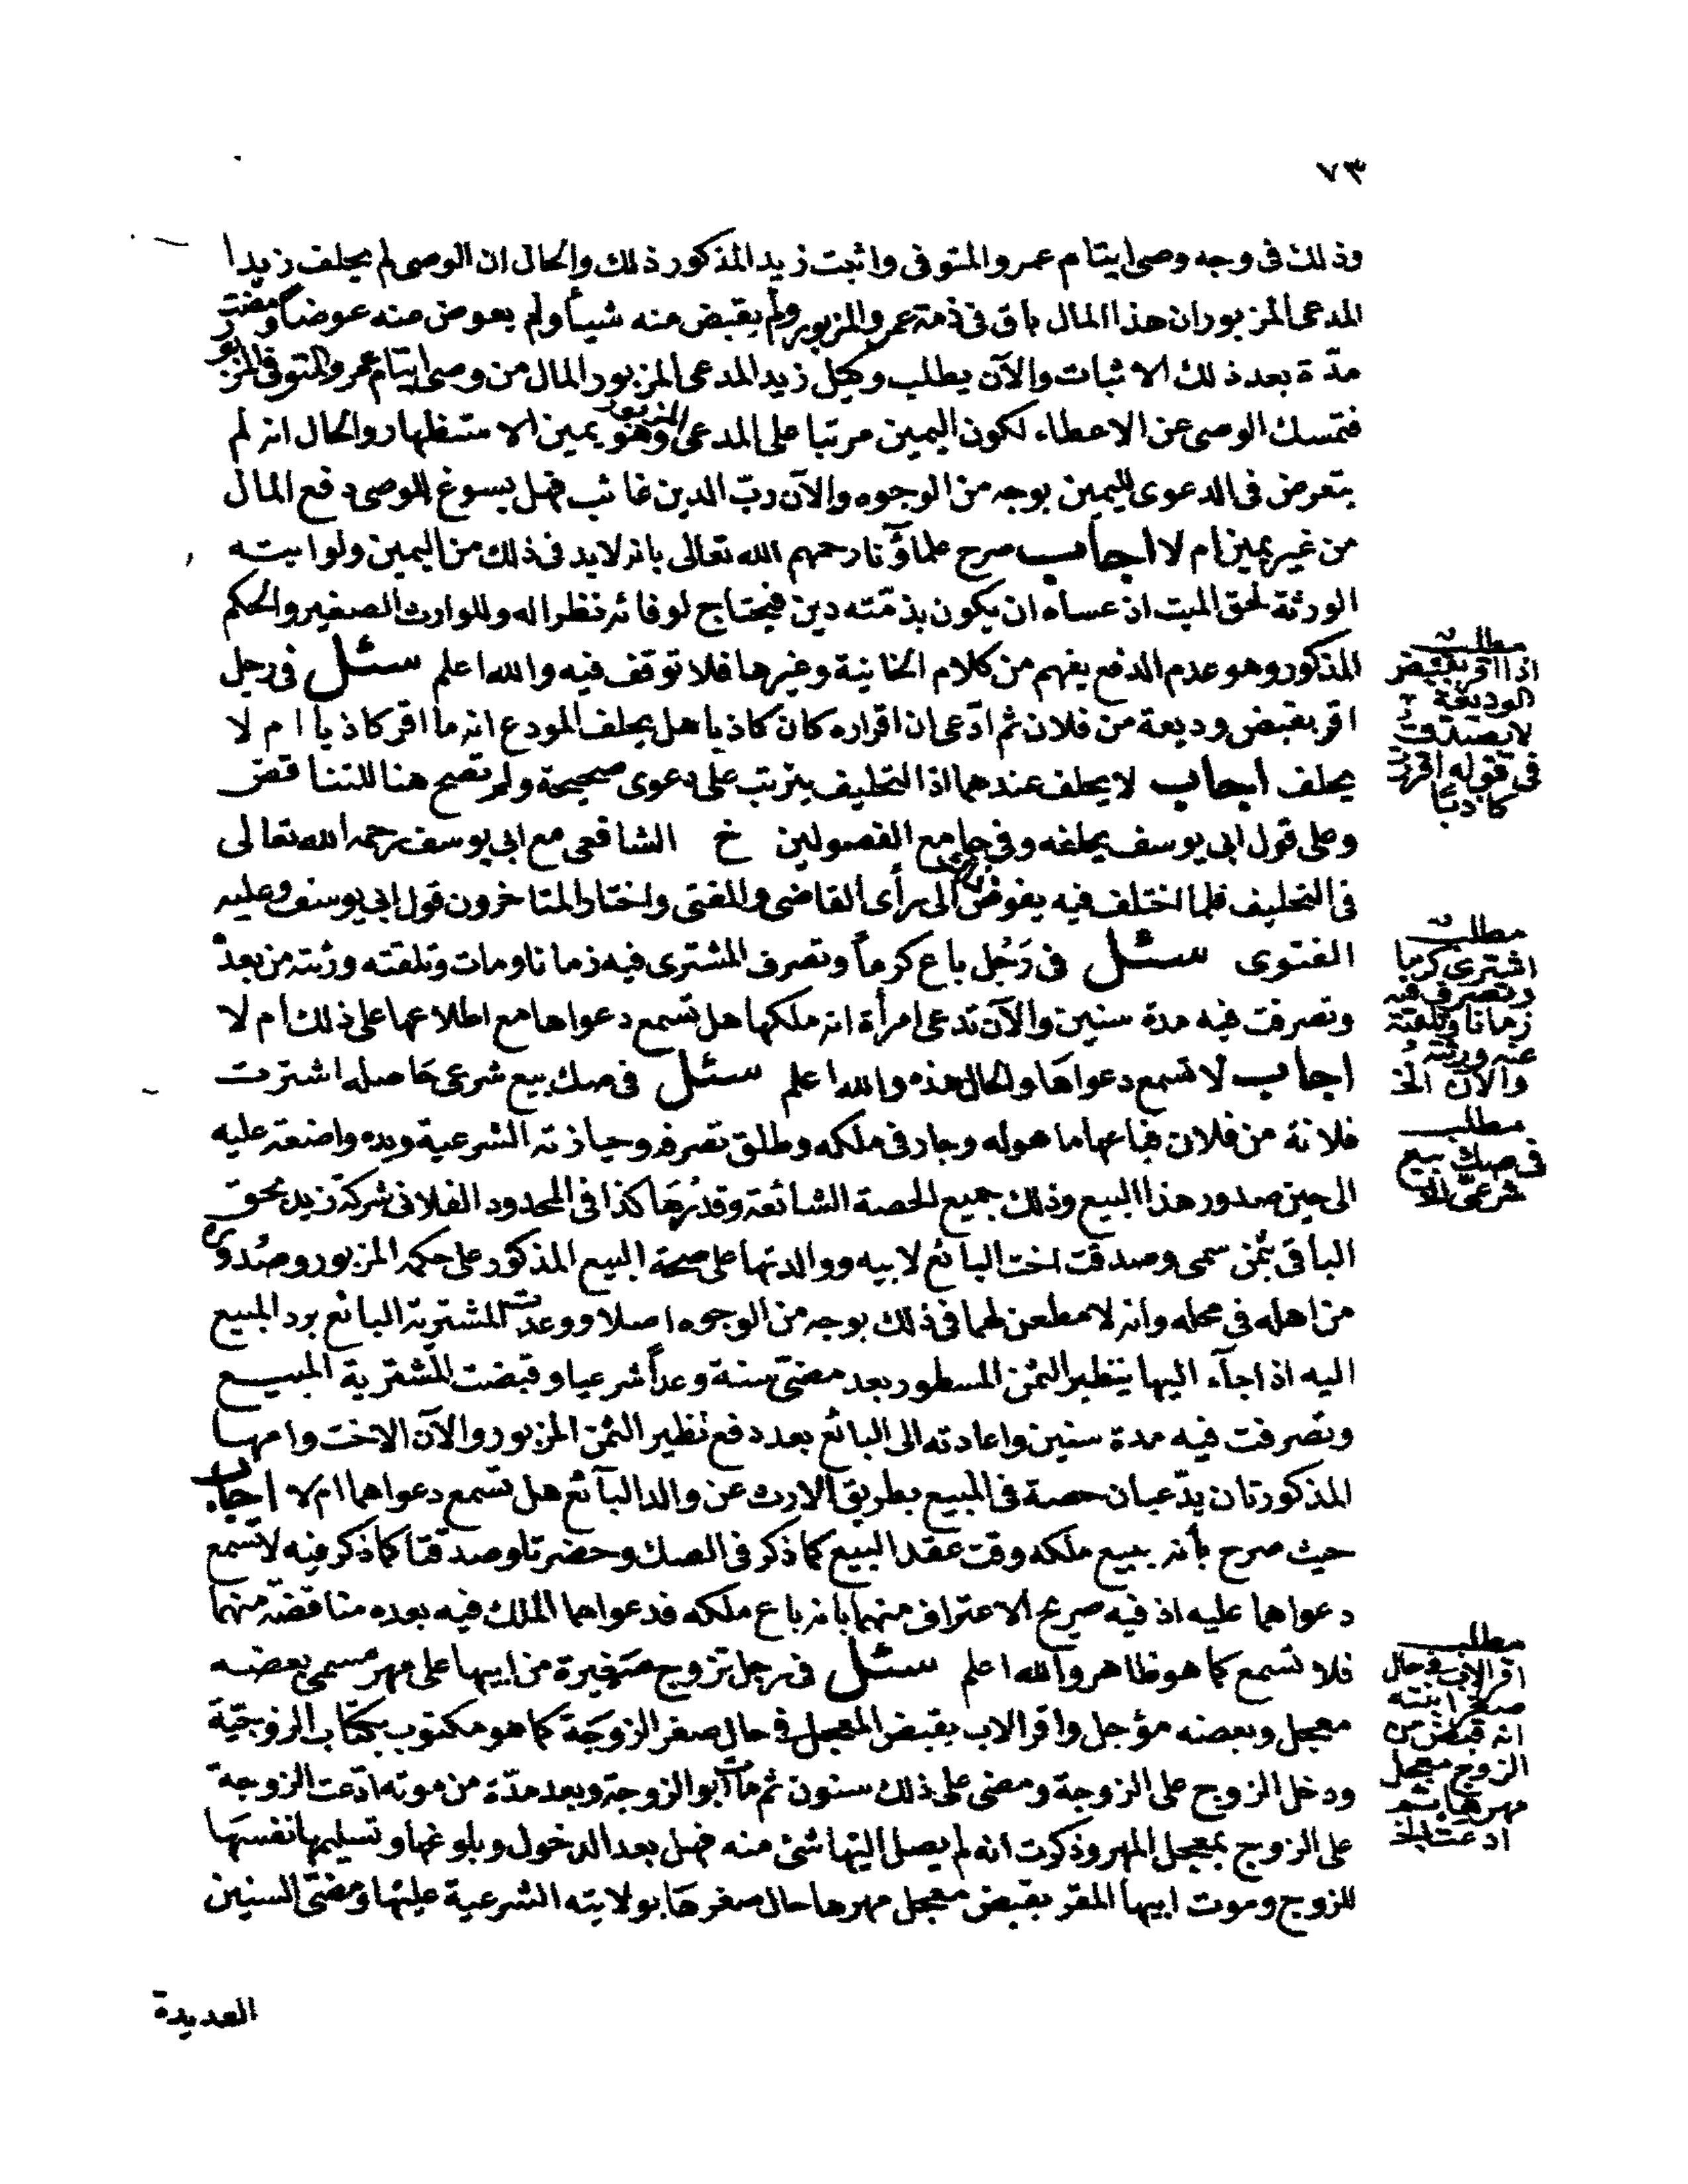 ٧٣
وذلك فى وجه وصى ايتام عمرو المتوفى واثبت زيد المذكور ذلك والحال ان الوصى لم يحلف زيدا
المدعى المزبور ان هذا المال باق فى ذمة عمرو المزبور ولم يقبض منه شيأ ولم يعوض منه عوضا ومضت
مدّة بعد ذلك الاثبات والآن يطلب وكيل زيد المدعى المزبور المال من وصى ايتام عمرو المتوفى المزبور
فتمسك الوصى عن الاعطاء لكون اليمين مرتبا على المدعى المزبور وهو يمين الاستظهار والحال انه لم
يتعرض فى الدعوى لليمين بوجه من الوجوه والآن ربّ الدين غائب فهل يسوغ للوصى دفع المال
من غير يمين ام لا اجاب صرح علماؤنا رحمهم الله تعالى بانه لابد فى ذلك من اليمين ولو ابيته
الورثة لحق الميت اذ عساه ان يكون بذمّته دين فيحتاج لوفائه نظرا له وللوارث الصغير والحكم
المذكور وهو عدم الدفع يفهم من كلام الخانية وغيرها فلا توقف فيه والله اعلم سئل فى رجل
اقر بقبض وديعة من فلان ثم ادّعى ان اقراره كان كاذبا هل يحلف المودع انه ما اقر كاذبا ام لا
يحلف اجاب لا يحلف عندهما اذ التحليف يترتب على دعوى صحيحة ولم تصح هنا للتناقض
وعلى قول ابى يوسف يحلفه وفى جامع الفصولين خ الشافعى مع ابى يوسف رحمه الله تعالى
فى التحليف فلما اختلف فيه يفوض الى رأى القاضى والمفتى واختار المتاخرون قول ابى يوسف وعليه
الفتوى سئل فى رَجُل باع كرماً وتصرف المشترى فيه زمانا ومات وتلقته ورثته من بعده
وتصرفت فيه مدة سنين والآن تدعى امرأة انه ملكها هل تسمع دعواها مع اطلاعها على ذلك ام لا
اجاب لا تسمع دعواها والحال هذه والله اعلم سئل فى صك بيع شرعى حاصله اشترت
فلانة من فلان فباعها ما هو له وجار فى ملكه وطلق تصرفه وحيازته الشرعية ويده واضعة عليه
الى حين صدور هذا البيع وذلك جميع الحصة الشائعة وقدرها كذا فى المحدود الفلانى شركة زيد بحق
الباقى بثمن سمى وصدقت اخت البائع لابيه ووالدتها على صحة البيع المذكور على حكمه المزبور وصدوره
من اهله فى محله وانه لا مطعن لهما فى ذلك بوجه من الوجوه اصلا ووعدت المشترية البائع برد المبيع
اليه اذا جآء اليها بنظير الثمن المسطور بعد مضىّ سنة وعداً شرعيا وقبضت المشترية المبيع
وتصرفت فيه مدة سنين واعادته الى البائع بعد دفع نظير الثمن المزبور والآن الاخت وامها
المذكورتان يدّعيان حصة فى المبيع بطريق الارث عن والد البآئع هل تسمع دعواهما ام لا اجاب
حيث صرح بأنه يبيع ملكه وقت عقد البيع كما ذكر فى الصك وحضرتا وصدقتا كما ذكر فيه لا تسمع
دعواهما عليه اذ فيه صريح الاعتراف منهما بانه باع ملكه فدعواهما الملك فيه بعده مناقضة منهما
فلا تسمع كما هو ظاهر والله اعلم سئل فى رجل تزوج صغيرة من ابيها على مهر مسمى بعضه
معجل وبعضه مؤجل واقر الاب بقبض المعجل فى حال صغر الزوجة كما هو مكتوب بكتاب الزوجيّة
ودخل الزوج على الزوجة ومضى على ذلك سنون ثم مات ابو الزوجة وبعد مدّة من موته ادّعت الزوجة
على الزوج بمعجل المهر وذكرت انه لم يصل اليها شئ منه فهل بعد الدخول وبلوغها وتسليمها نفسها
للزوج وموت ابيها المقر بقبض معجل مهرها حال صغرها بولايته الشرعية عليها ومضىّ السنين
العديدة
مطلب
اذا اقر بقبض
الوديعة
لا يصدق
فى قوله اقررت
كاذبا
مطلب
اشترى كرما
وتصرف فيه
زمانا وتلقته
عنه ورثته
والآن الخ
مطلب
فى صك بيع
شرعىّ الخ
مطلب
اقر الاب فى حال
صغر ابنته
انه قبض من
الزوج معجل
مهرها ثم
ادعت الخ